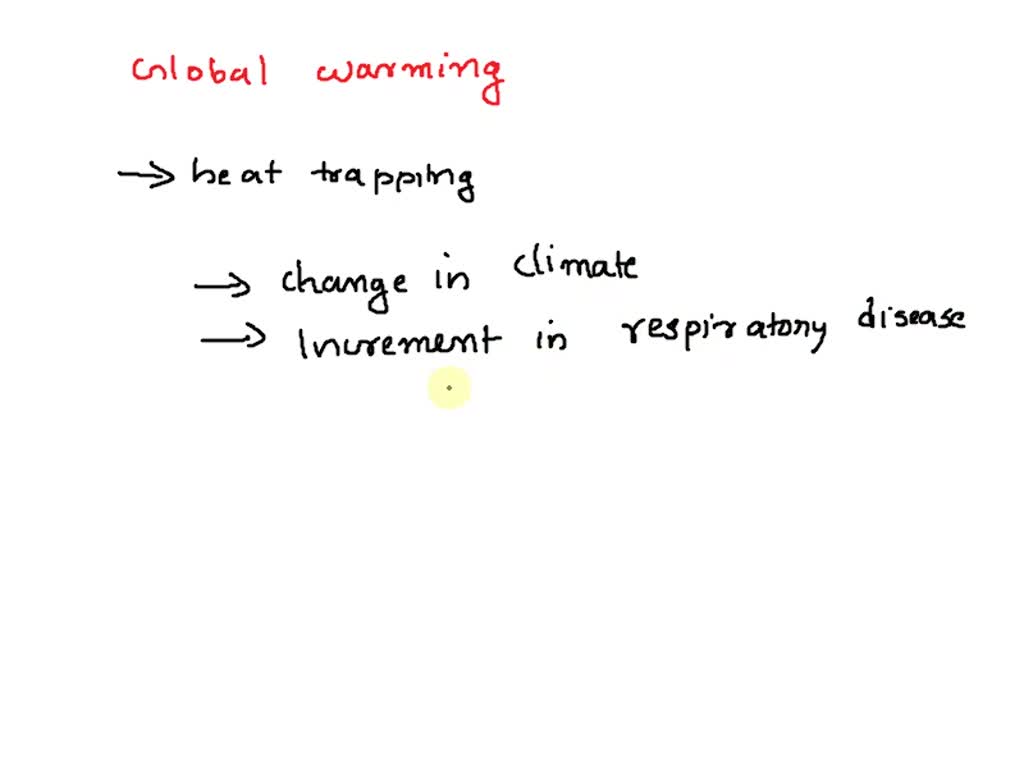 Global warming
→ heat trapping
→ change in climate
→ Increment in respiratory disease